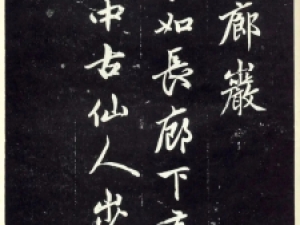 廊巖
如長廊下
中古仙人步